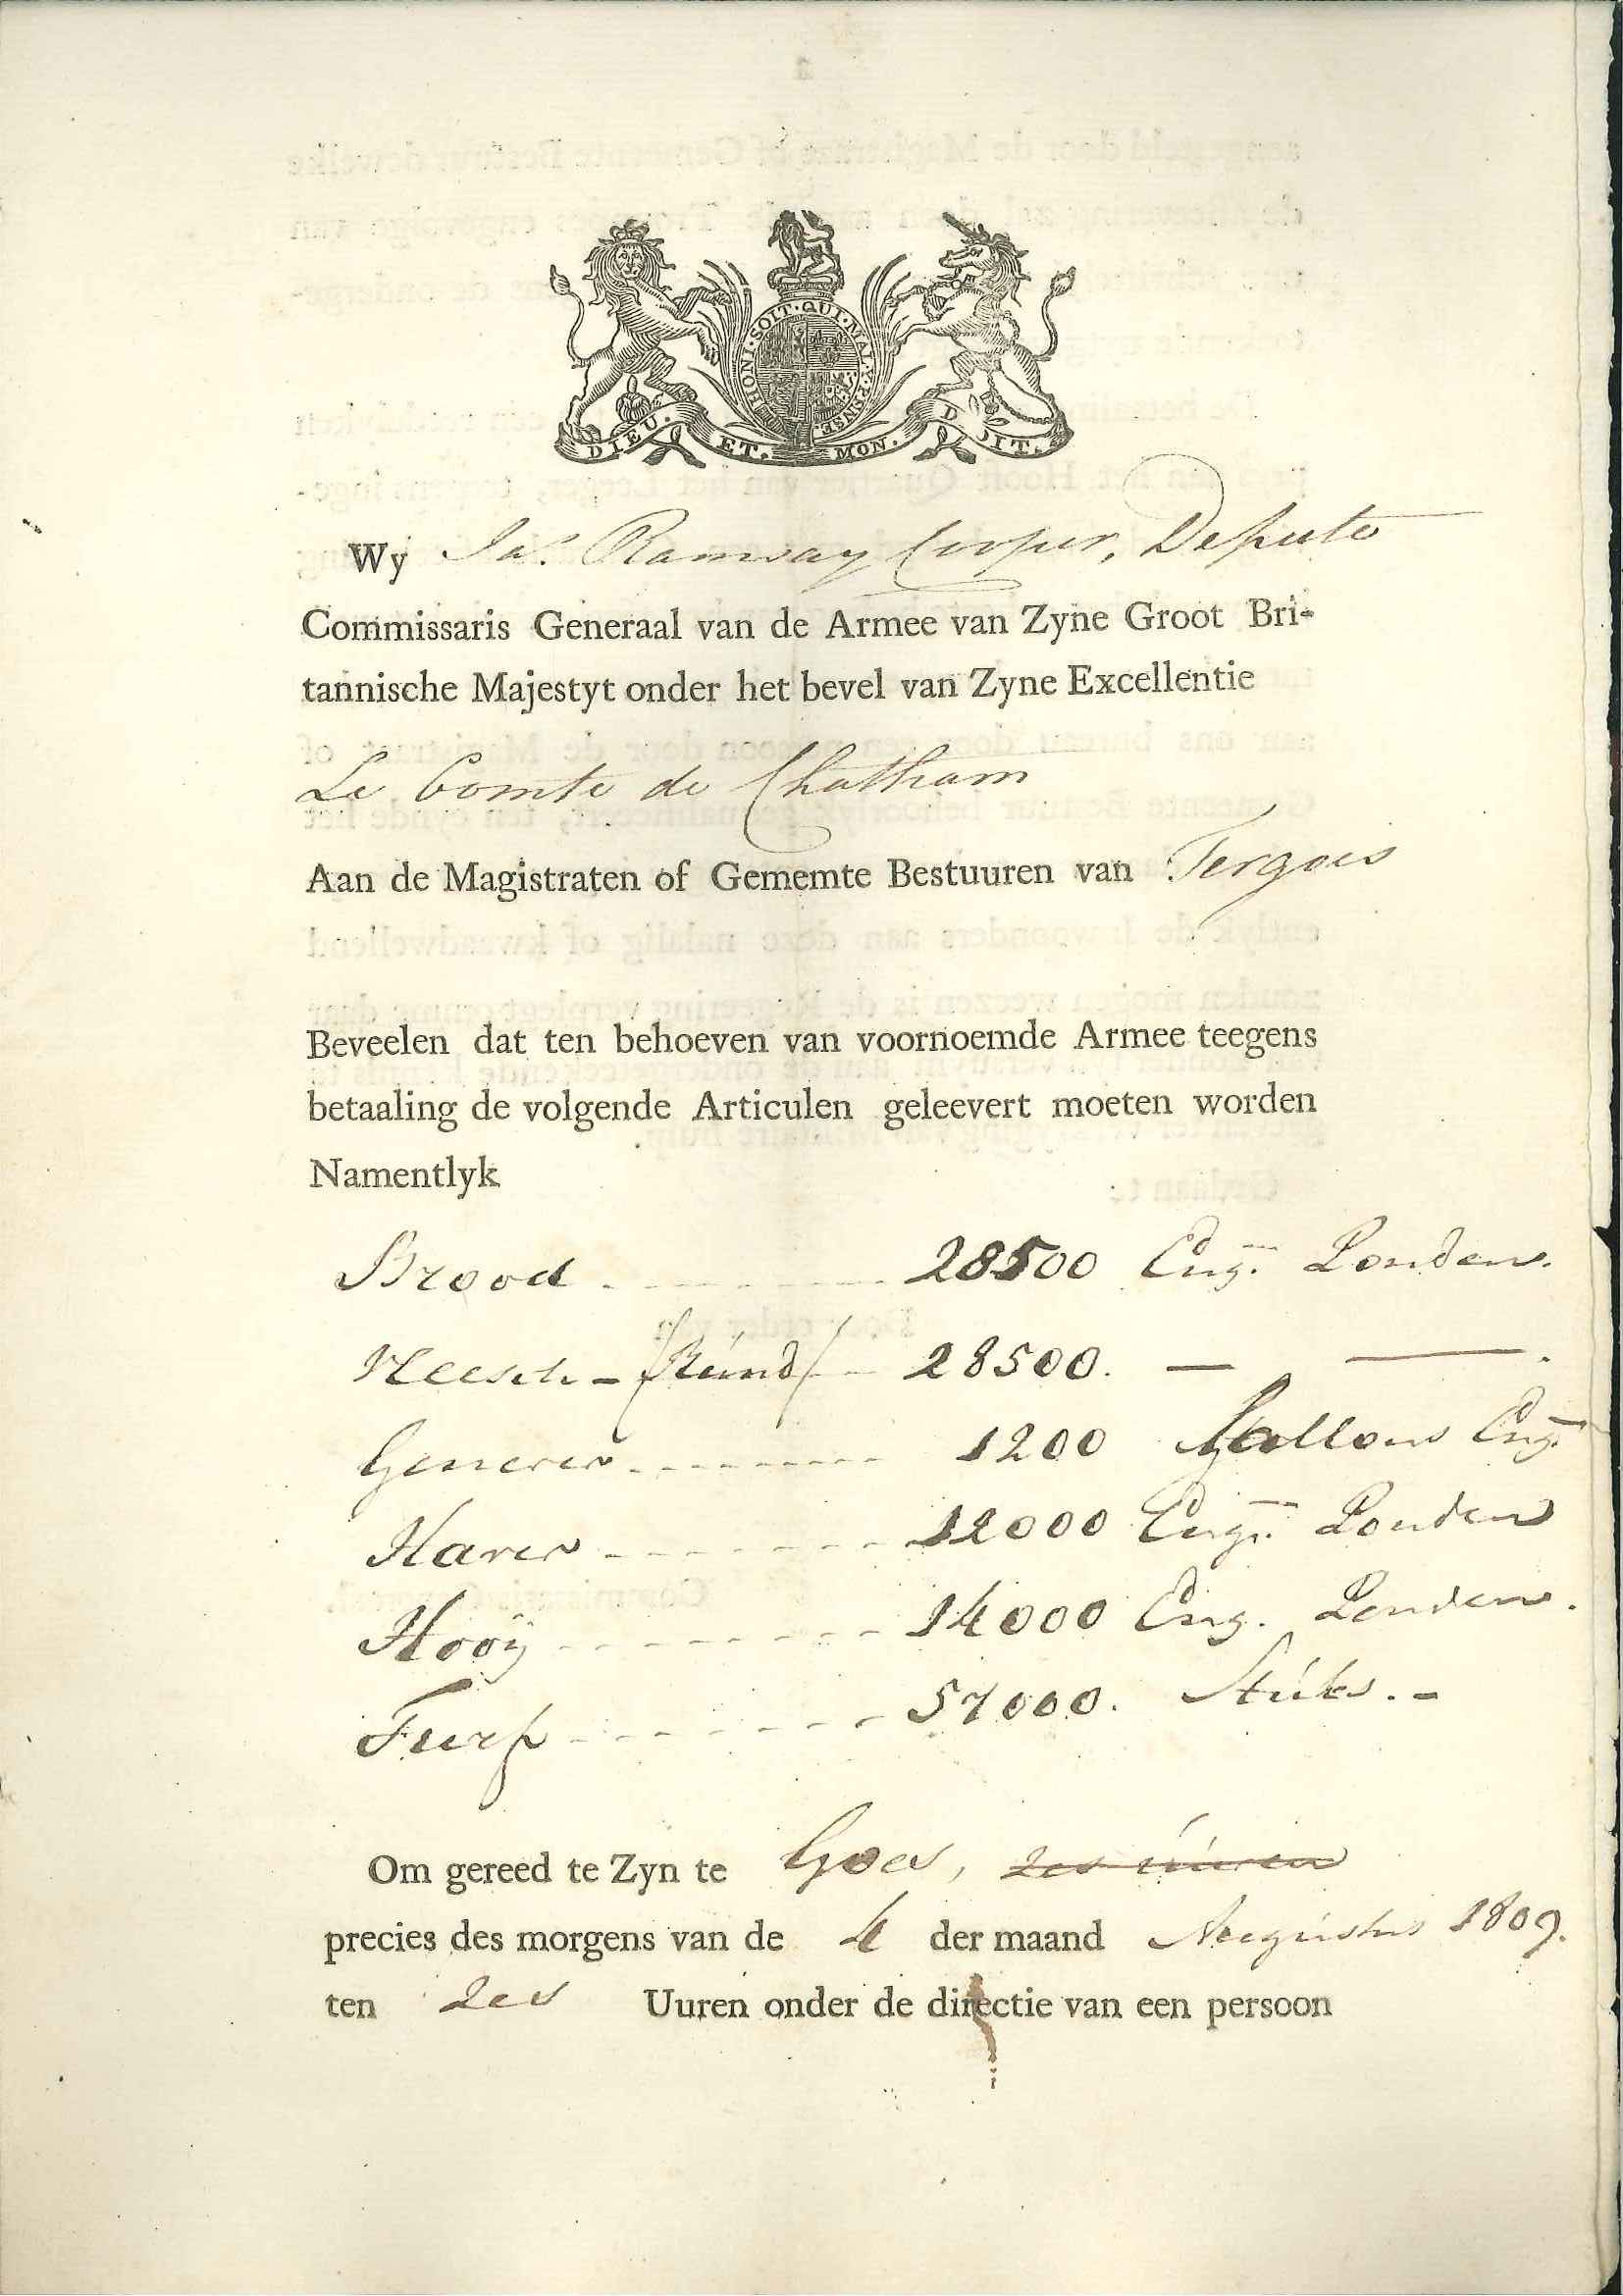 HONI·SOIT·QUI·MAL·Y·PENSE
DIEU. ET. MON. D OIT.
Wy Jas. Ramsay Cooper, Depute
Commissaris Generaal van de Armee van Zyne Groot Bri-
tannische Majestyt onder het bevel van Zyne Excellentie
Le Comte de Chatham
Aan de Magistraten of Gememte Bestuuren van Tergoes
Beveelen dat ten behoeven van voornoemde Armee teegens
betaaling de volgende Articulen geleevert moeten worden
Namentlyk
Brood 28500 Eng. Ponden.
Vleesch - (Rund) 28500. — —.
Genever 1200 Gallons Eng.
Haver 12000 Eng. Ponden
Hooÿ 14000 Eng. Ponden.
Turf 57000. Stuks. -
Om gereed te Zyn te Goes, zes uuren
precies des morgens van de 4 der maand Augustus 1809.
ten Zes Uuren onder de directie van een persoon